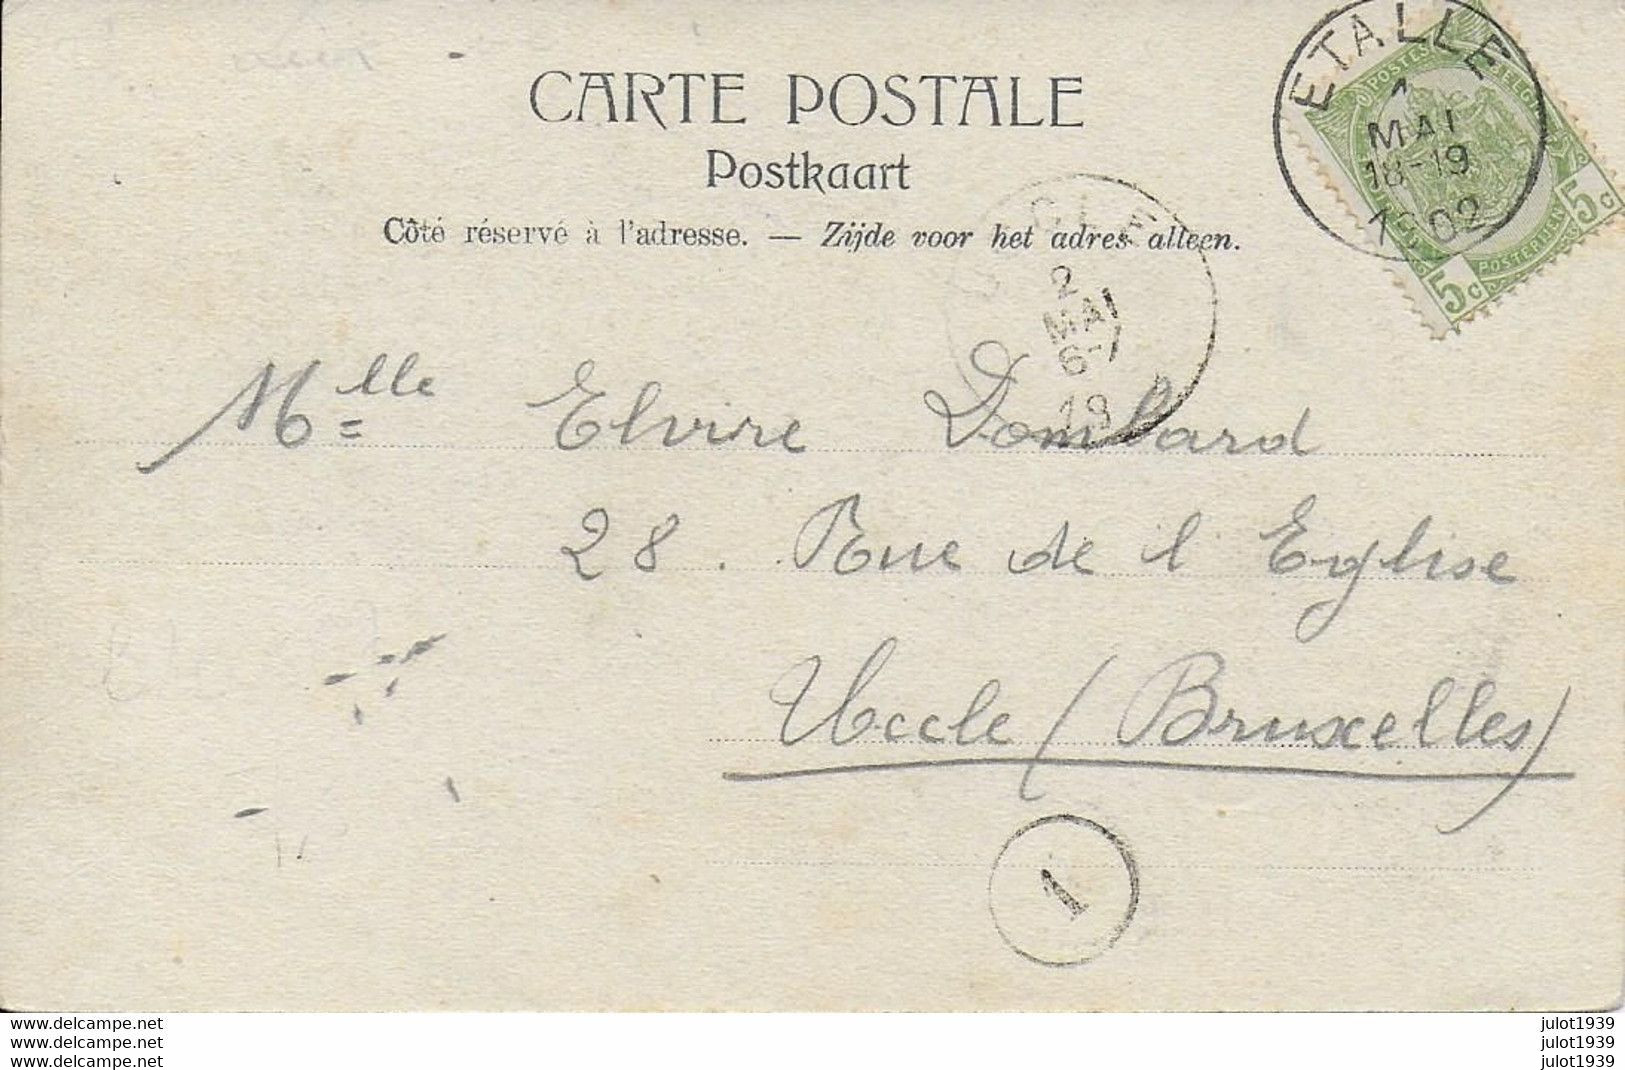 CARTE POSTALE
Postkaart
Côté réservé à l'adresse. — Zijde voor het adres alleen.
ETALLE
1
MAI
18-19
1902
POSTES
5c
5c
2
MAI
6-7
19
Mlle Elvire Dombard
28. Rue de l Eglise
Uccle (Bruxelles)
1
www.delcampe.net
www.delcampe.net
www.delcampe.net
julot1939
julot1939
julot1939